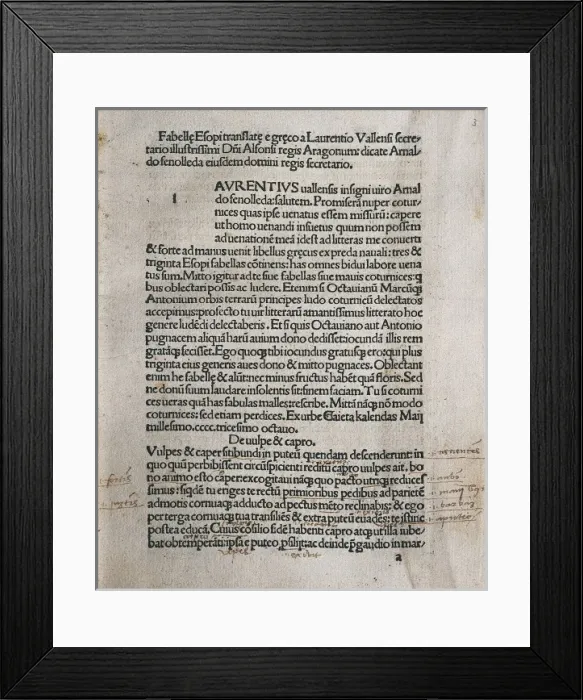 3
Fabellę Esopi translatę e gręco a Laurentio Vallensi secre-
tario illustrissimi Dñi Alfonsi regis Aragonum: dicate Arnal-
do fenolleda eiusdem domini regis secretario.
l AVRENTIVS uallensis insigni uiro Arnal
do fenolleda: salutem. Promiserã nuper cotur-
nices quas ipse uenatus essem missurũ: capere
ut homo uenandi insuetus quum non possem
ad uenationẽ meã idest ad litteras me conuerti
& forte ad manus uenit libellus gręcus ex preda nauali: tres &
triginta Esopi fabellas cõtinens: has omnes bidui labore uena
tus sum. Mitto igitur ad te siue fabellas siue mauis coturnices: q
bus oblectari possis ac ludere. Etenim si Octauianũ Marcũq;
Antonium orbis terrarũ principes ludo coturnicũ delectatos
accepimus: profecto tu uir litterarũ amantissimus litterato hoc
genere ludẽdi delectaberis. Et si quis Octauiano aut Antonio
pugnacem aliquã harũ auium dono dedisset: iocundã illis rem
gratãq; fecisset. Ego quoq; tibi iocundus gratusq; ero: qui plus
triginta eius generis aues dono & mitto pugnaces. Oblectant
enim he fabellę & alũt: nec minus fructus habẽt quã floris. Sed
ne donũ suum laudare insolentis sit: finem faciam. Tu si coturni
ces ueras quã has fabulas malles: rescribe. Mittã nãq; nõ modo
coturnices: sed etiam perdices. Ex urbe Gaieta kalendas Maij
millesimo.cccc.tricesimo octauo.
De uulpe & capro.
Vulpes & caper sitibundi in puteũ quendam descenderunt: in
quo quũ perbibissent circũspicienti reditũ capro uulpes ait. bo
no animo esto caper: excogitaui nãq; quo pacto utriq; reduces
simus: siqdẽ tu eriges te rectũ primoribus pedibus ad parietẽ
admotis cornuaq; adducto ad pectus mẽto reclinabis: & ego
per terga cornuaq; tua transiliẽs & extra puteũ euadẽs: te istinc
postea educã. Cuius cõsilio fidẽ habenti capro atq; ut illa iube-
bat obtemperãti: ipsa e puteo psilijt: ac deinde p gaudio in mar-
a